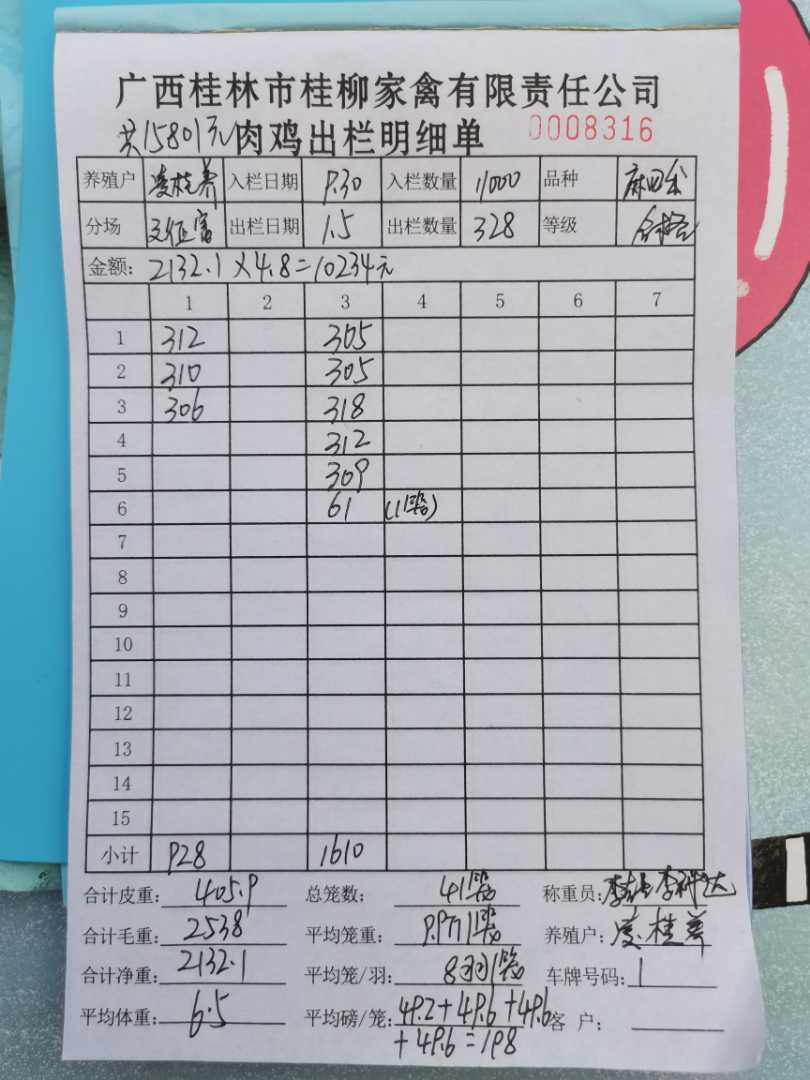 广西桂林市桂柳家禽有限责任公司
共15801元 肉鸡出栏明细单 0008316
养殖户 凌桂养 入栏日期 9.30 入栏数量 11000 品种 麻四公
分场 出栏日期 1.5 出栏数量 328 等级 合格
金额: 2132.1×4.8=10234元
1 2 3 4 5 6 7
1 312 305
2 310 305
3 306 318
4 312
5 309
6 61 (1笼)
7
8
9
10
11
12
13
14
15
小计 928 1610
合计皮重: 405.9 总笼数: 41笼 称重员:
合计毛重: 2538 平均笼重: 9.9斤/1笼 养殖户: 凌桂养
合计净重: 2132.1 平均笼/羽: 8羽/1笼 车牌号码:
平均体重: 6.5 平均磅/笼: 49.2+49.6+49.6 客 户:
+49.6=198